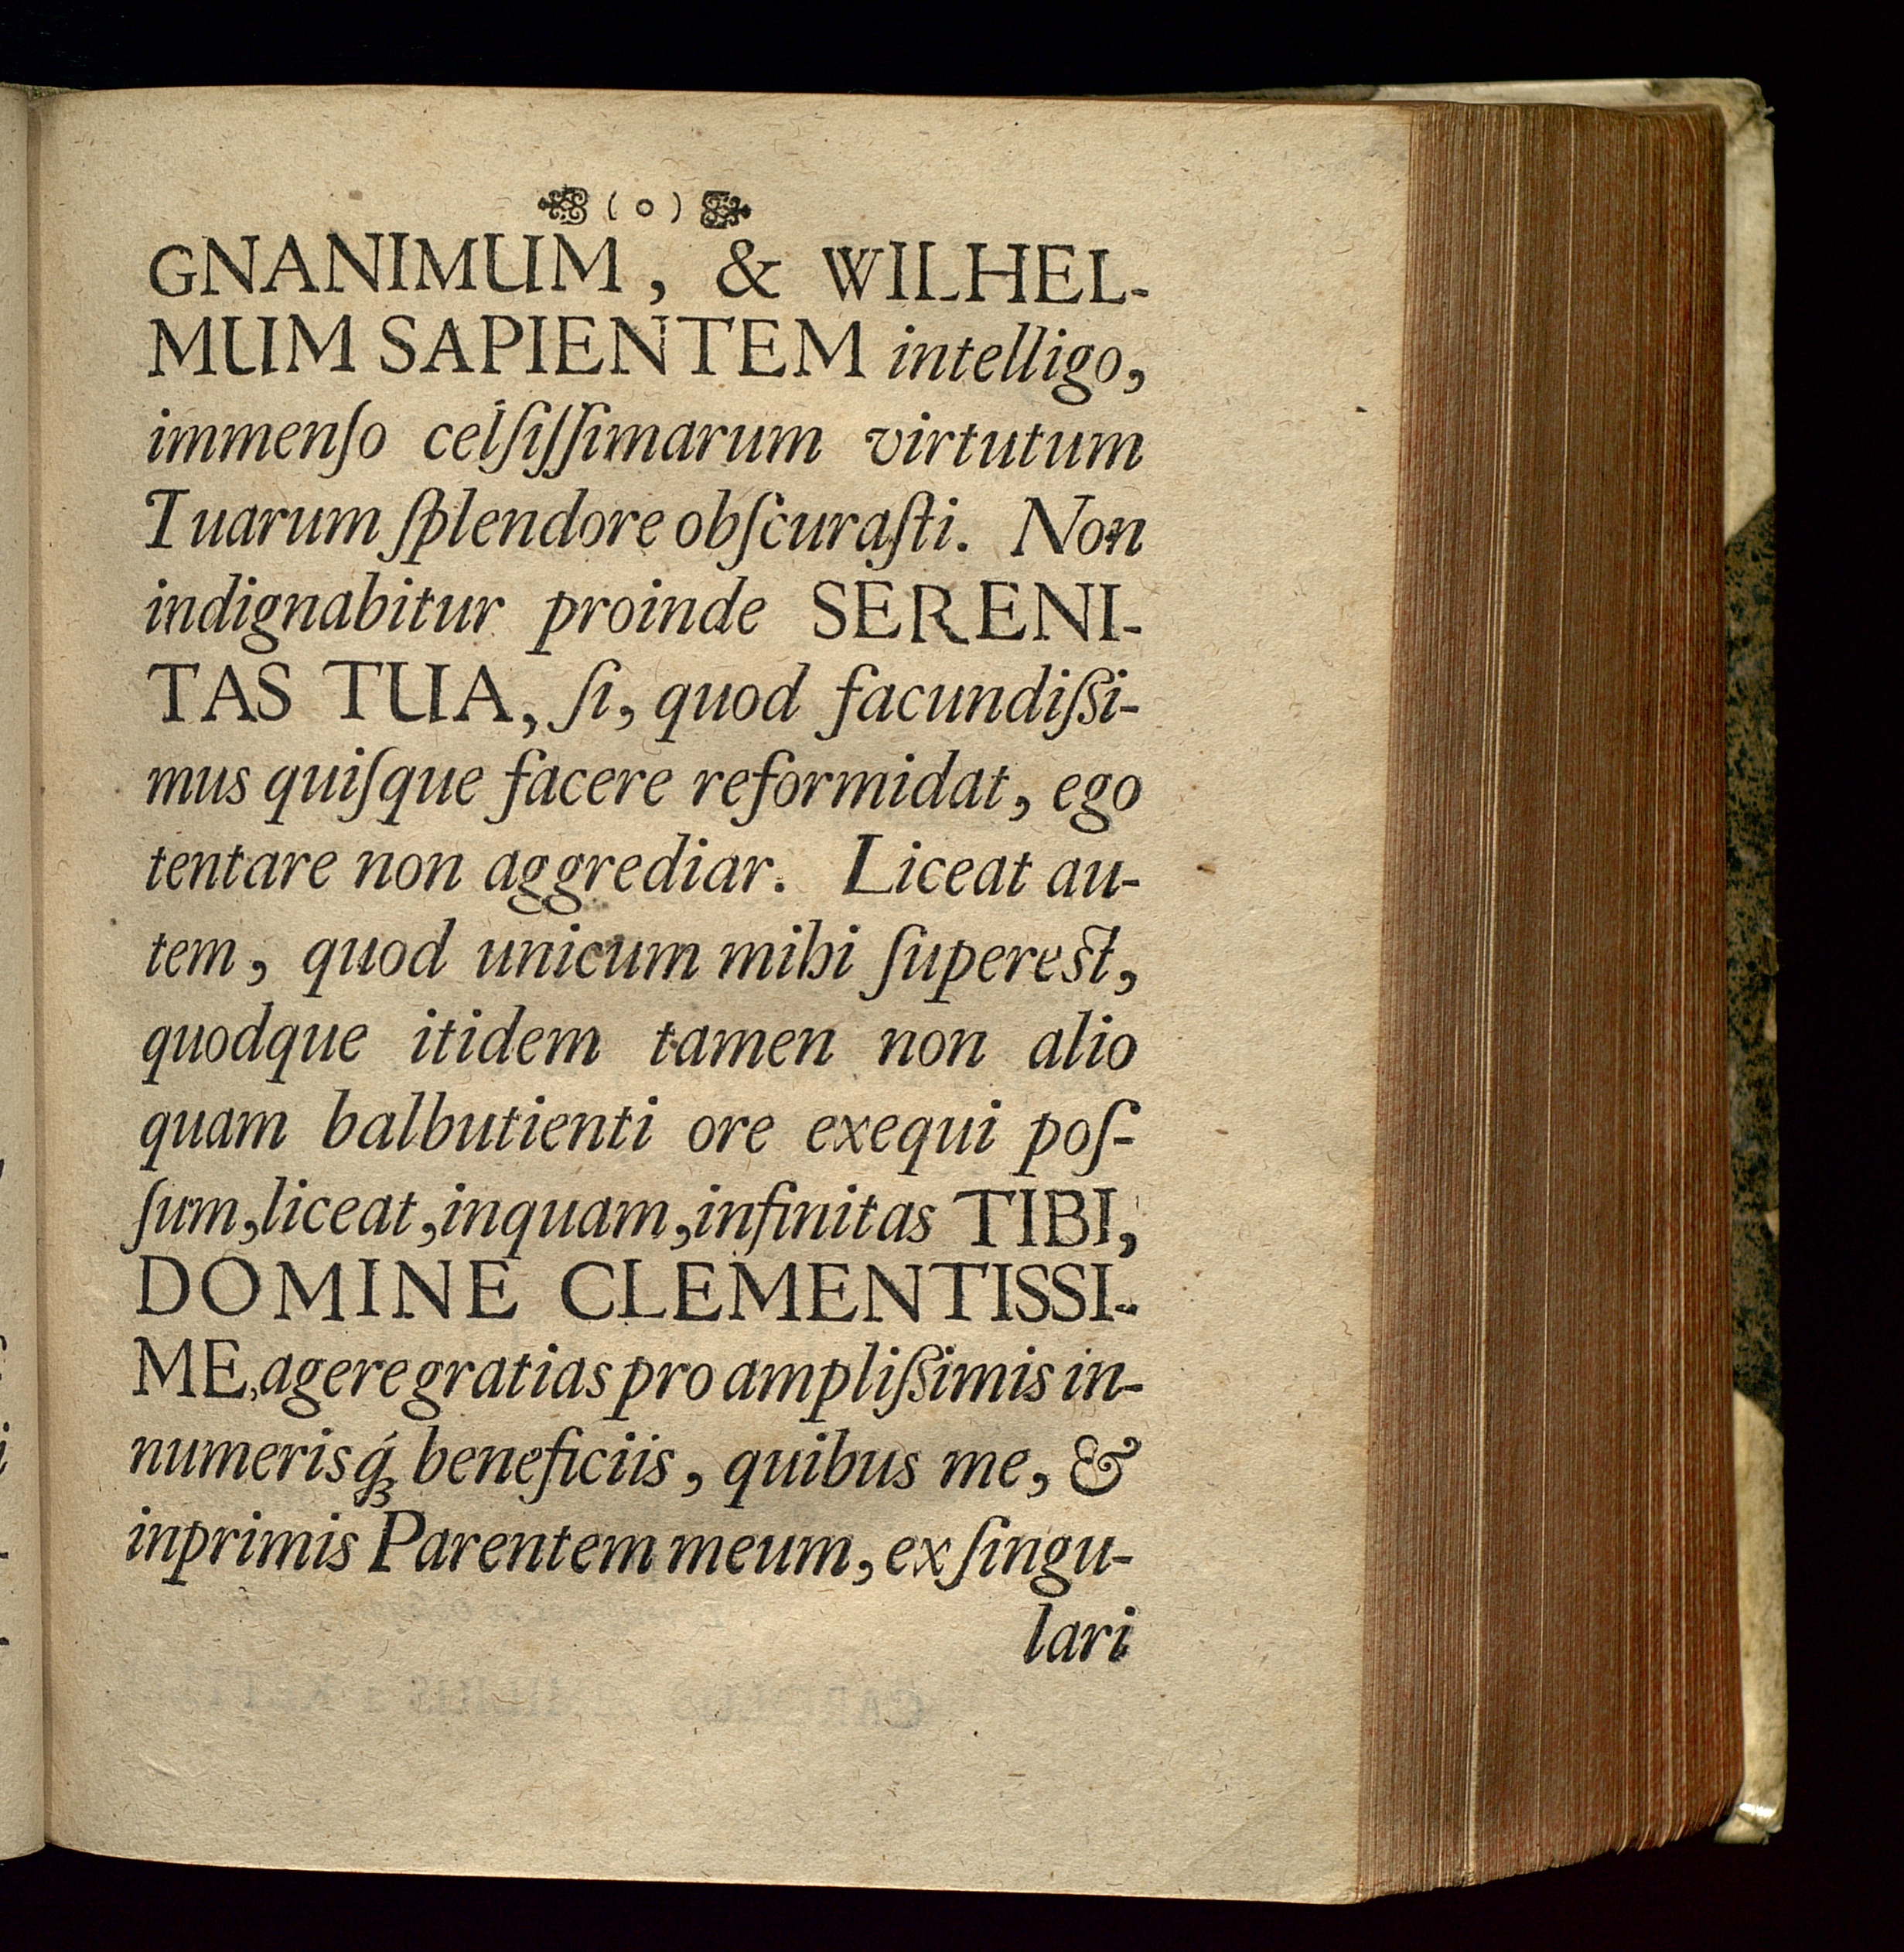 ( o )
GNANIMUM, & WILHEL-
MUM SAPIENTEM intelligo,
immenſo celſiſſimarum virtutum
Tuarum ſplendore obſcuraſti. Non
indignabitur proinde SERENI-
TAS TUA, ſi, quod facundiſſi-
mus quiſque facere reformidat, ego
tentare non aggrediar. Liceat au-
tem, quod unicum mihi ſupereſt,
quodque itidem tamen non alio
quam balbutienti ore exequi poſ-
ſum, liceat, inquam, infinitas TIBI,
DOMINE CLEMENTISSI-
ME, agere gratias pro ampliſſimis in-
numerisq́ꝫ beneficiis, quibus me, &
inprimis Parentem meum, ex ſingu-
lari